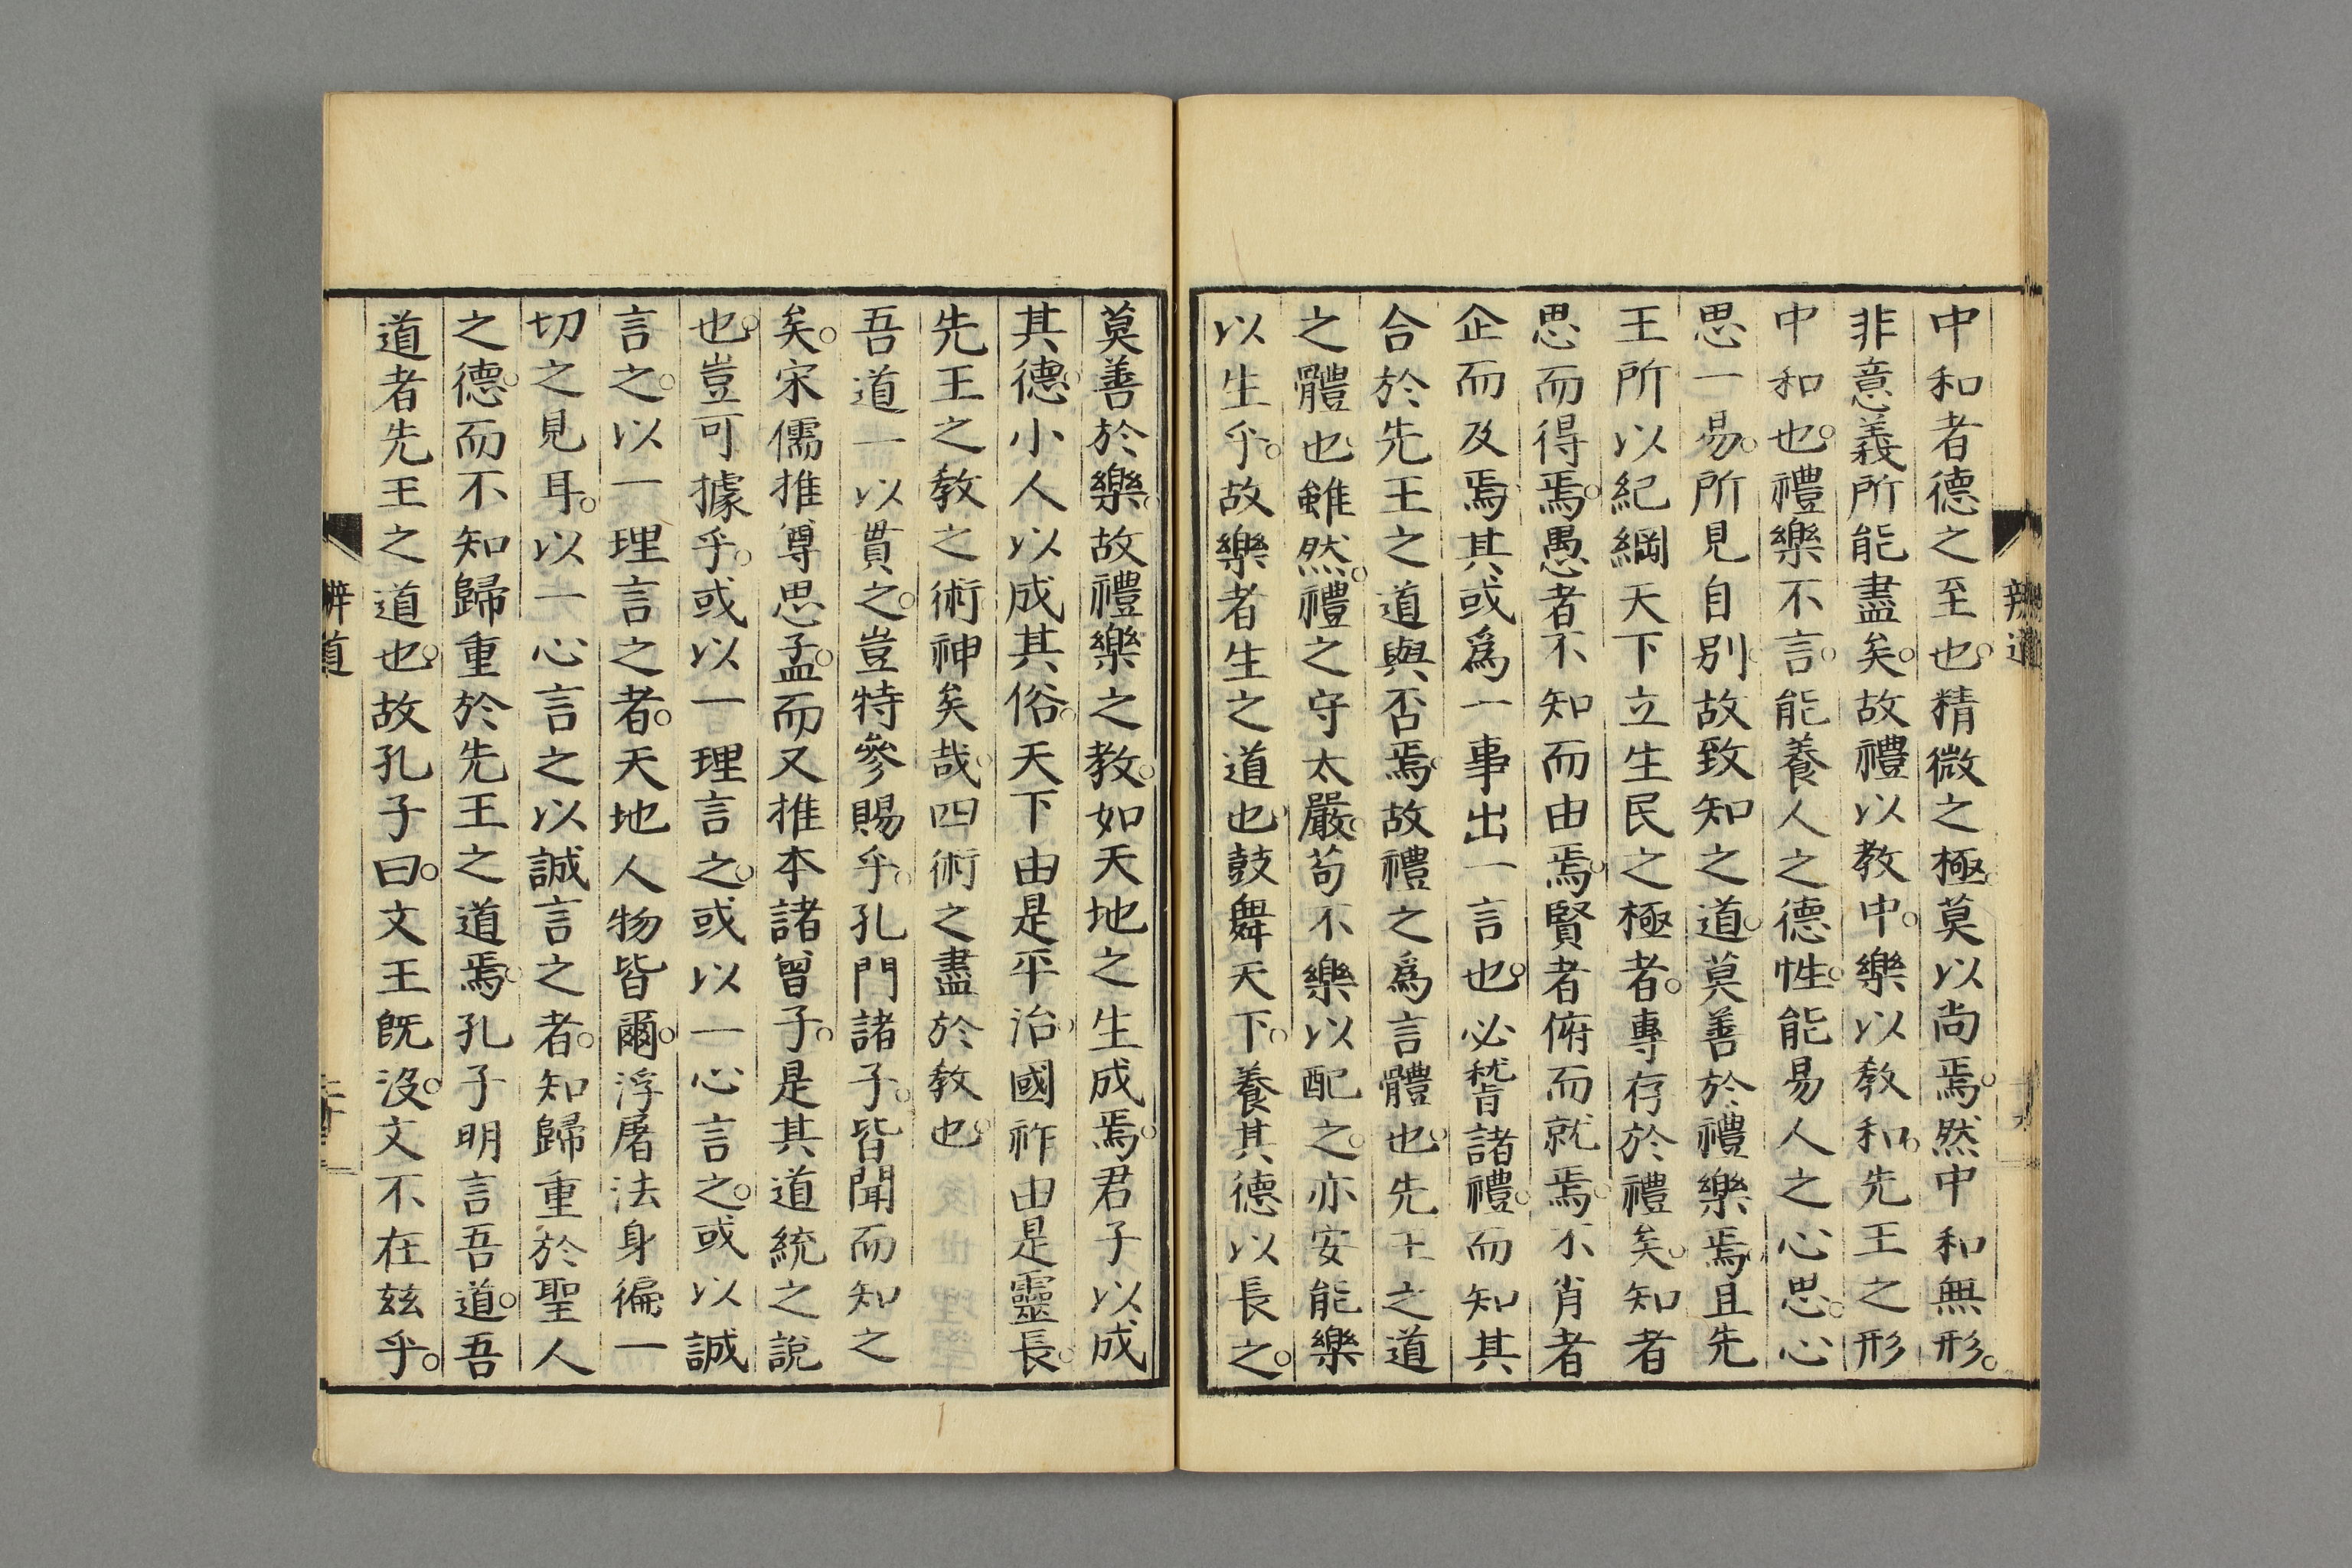 中和者德之至也。精微之極莫以尚焉。然中和無形。
非意義所能盡矣。故禮以教中。樂以教和。先王之形
中和也。禮樂不言。能養人之德性。能易人之心思。心
思一易。所見自別。故致知之道。莫善於禮樂焉。且先
王所以紀綱天下立生民之極者。專存於禮矣。知者
思而得焉。愚者不知而由焉。賢者俯而就焉。不肖者
企而及焉。其或爲一事出一言也。必諬諸禮。而知其
合於先王之道與否焉。故禮之爲言體也。先王之道
之體也。雖然。禮之守太嚴。苟不樂以配之。亦安能樂
以生乎。故樂者生之道也。鼓舞天下。養其德以長之。
莫善於樂。故禮樂之教。如天地之生成焉。君子以成
其德。小人以成其俗。天下由是平治。國祚由是靈長。
先王之教之術神矣哉。四術之盡於教也。
吾道一以貫之。豈特參賜乎。孔門諸子。皆聞而知之
矣。宋儒推尊思孟。而又推本諸曾子。是其道統之說
也。豈可據乎。或以一理言之。或以一心言之。或以誠
言之。以一理言之者。天地人物皆爾。浮屠法身徧一
切之見耳。以一心言之以誠言之者。知歸重於聖人
之德。而不知歸重於先王之道焉。孔子明言吾道。吾
道者先王之道也。故孔子曰。文王旣沒。文不在茲乎。
辨道